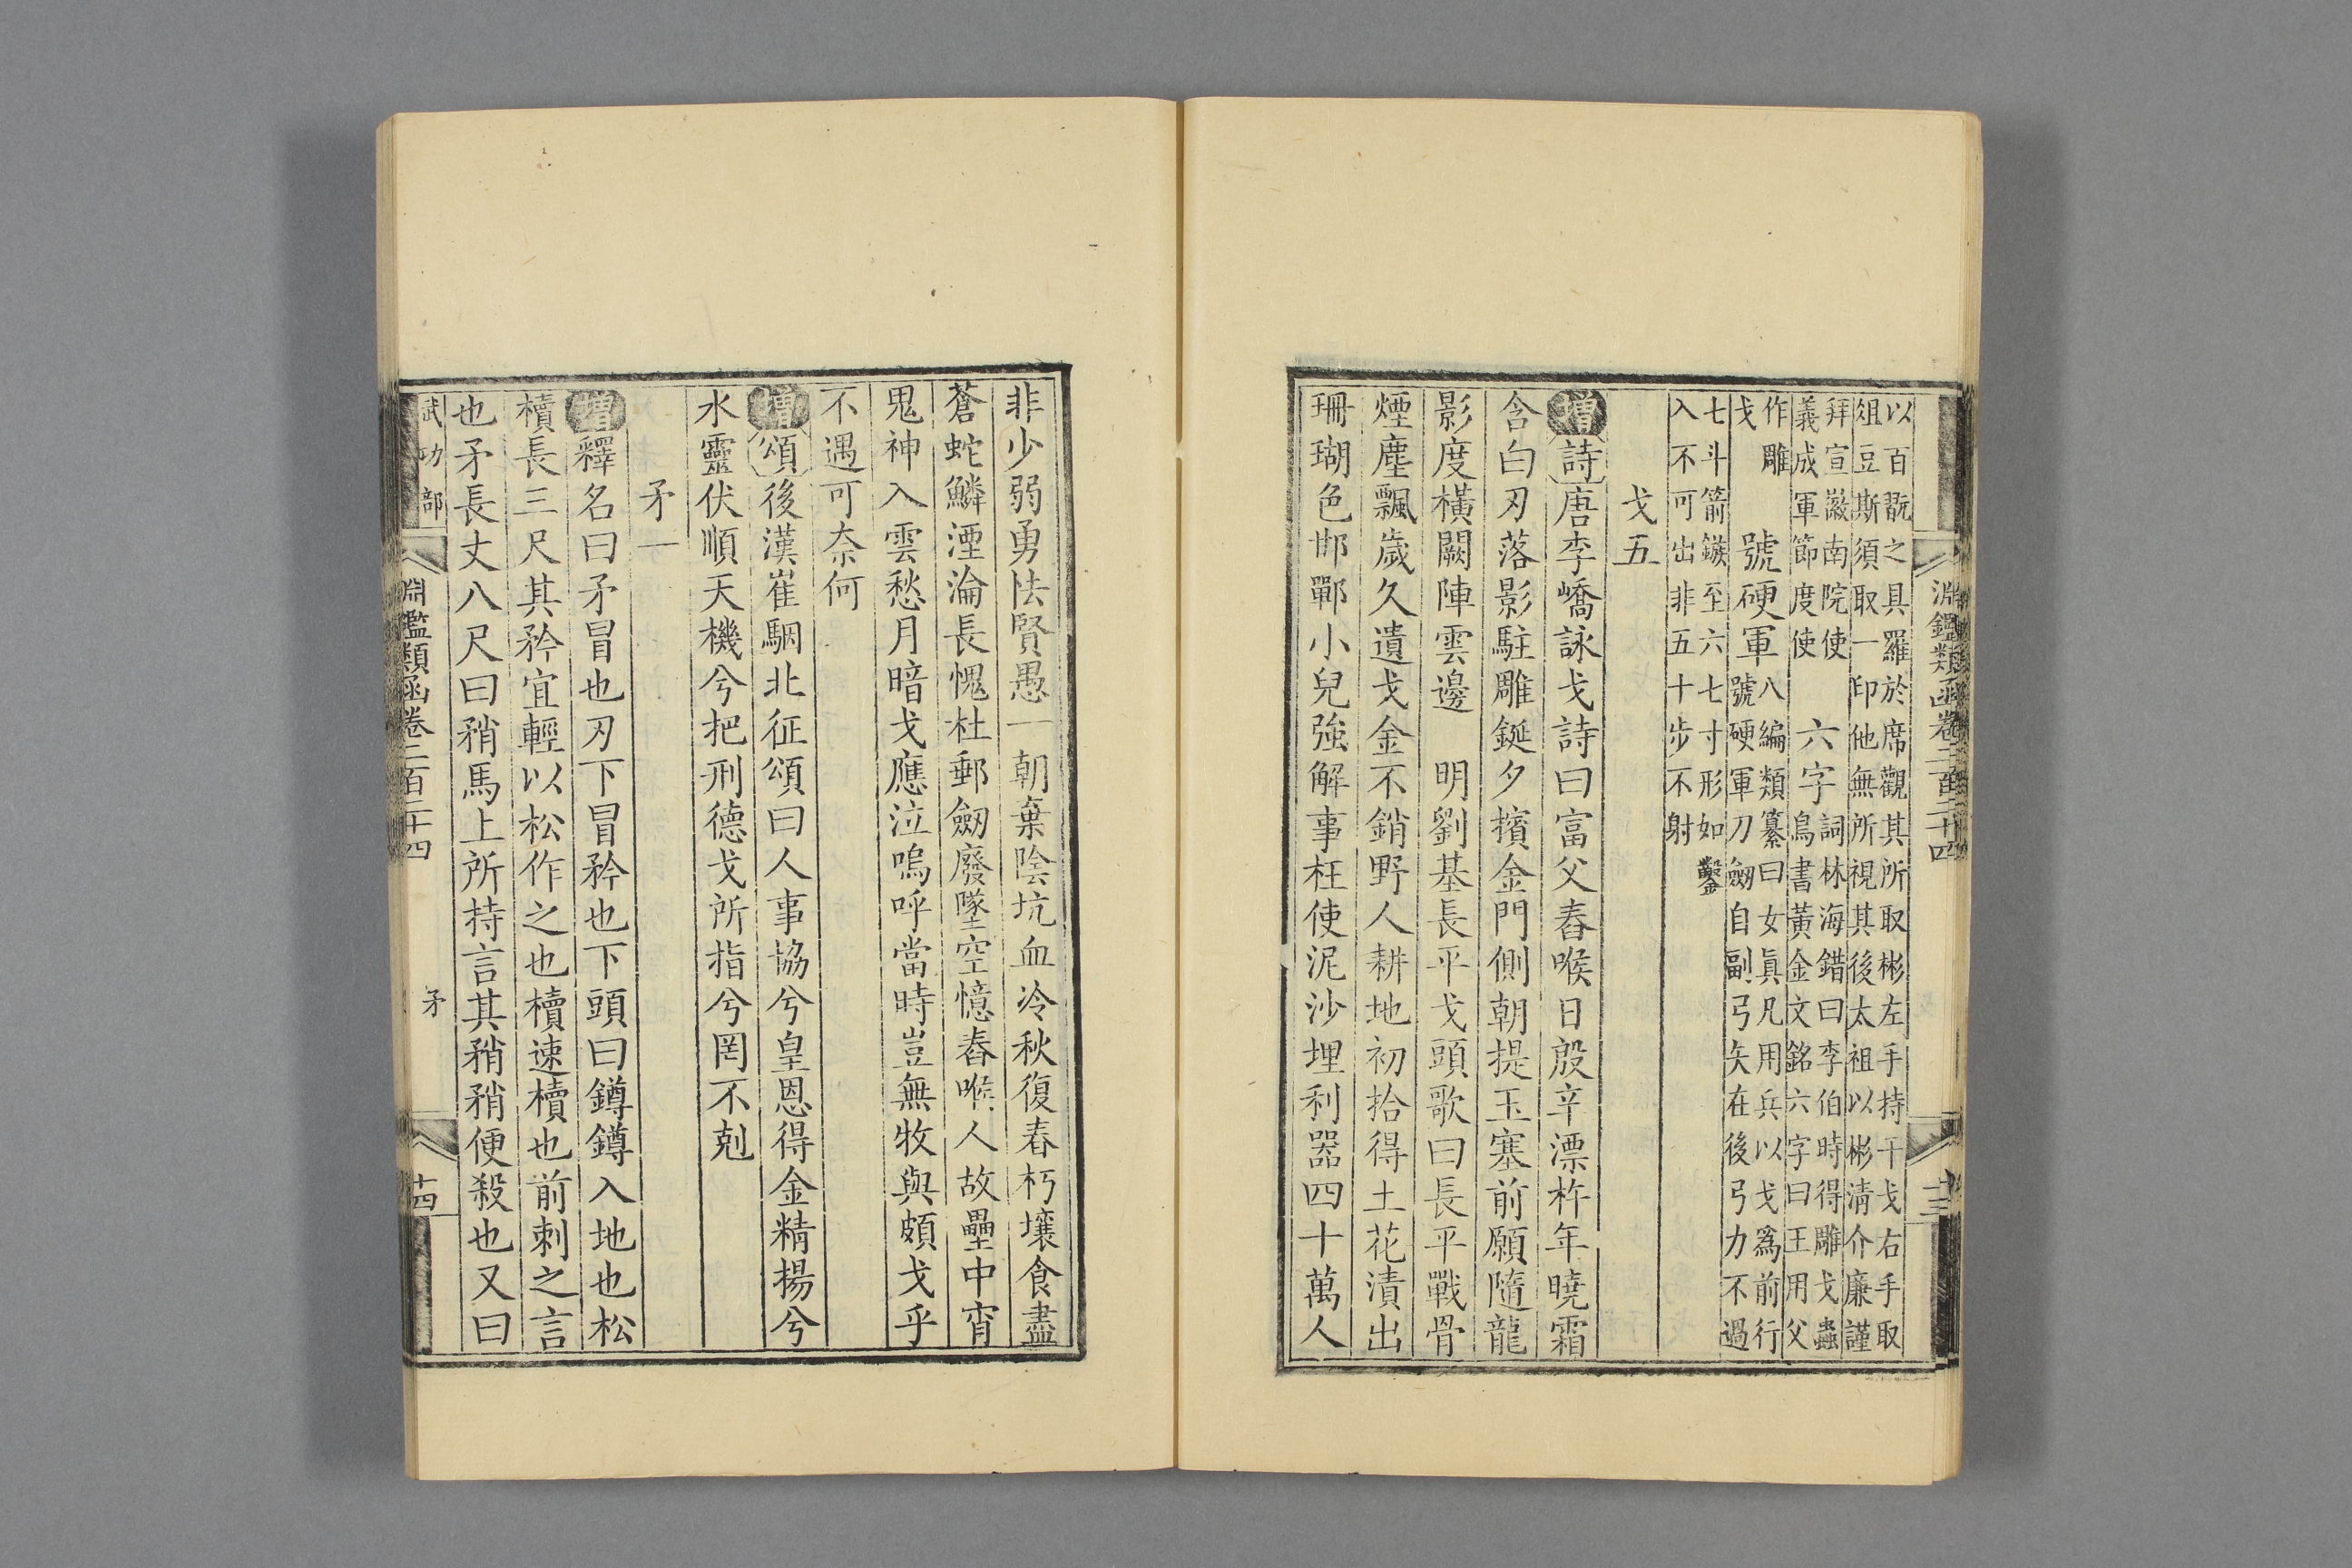 淵鑑類函卷二百二十四
十三
以百翫之具羅於席觀其所取彬左手持干戈右手取
俎豆斯須取一印他無所視其後太祖以彬淸介廉謹
拜宣徽南院使
義成軍節度使
六字
詞林海錯曰李伯時得雕戈蟲
鳥書黃金文銘六字曰王用父
作雕
戈
號硬軍
八編類纂曰女眞凡用兵以戈爲前行
號硬軍刀劒自副弓矢在後弓力不過
七斗箭鏃至六七寸形如鑿
入不可出非五十步不射
戈五
增詩唐李嶠詠戈詩曰富父舂喉日殷辛漂杵年曉霜
含白刃落影駐雕鋋夕擯金門側朝提玉塞前願隨龍
影度橫闕陣雲邊 明劉基長平戈頭歌曰長平戰骨
煙塵飄歲久遺戈金不銷野人耕地初拾得土花漬出
珊瑚色邯鄲小兒強解事枉使泥沙埋利器四十萬人
非少弱勇怯賢愚一朝棄陰坑血冷秋復春朽壤食盡
蒼蛇鱗湮淪長愧杜郵劒廢墜空憶舂喉人故壘中宵
鬼神入雲愁月暗戈應泣嗚呼當時豈無牧與頗戈乎
不遇可奈何
增頌後漢崔駰北征頌曰人事協兮皇恩得金精揚兮
水靈伏順天機兮把刑德戈所指兮罔不剋
矛一
增釋名曰矛冒也刃下冒矜也下頭曰鐏鐏入地也松
櫝長三尺其矜宜輕以松作之也櫝速櫝也前刺之言
也矛長丈八尺曰矟馬上所持言其矟矟便殺也又曰
武功部
淵鑑類函卷二百二十四
矛
十四